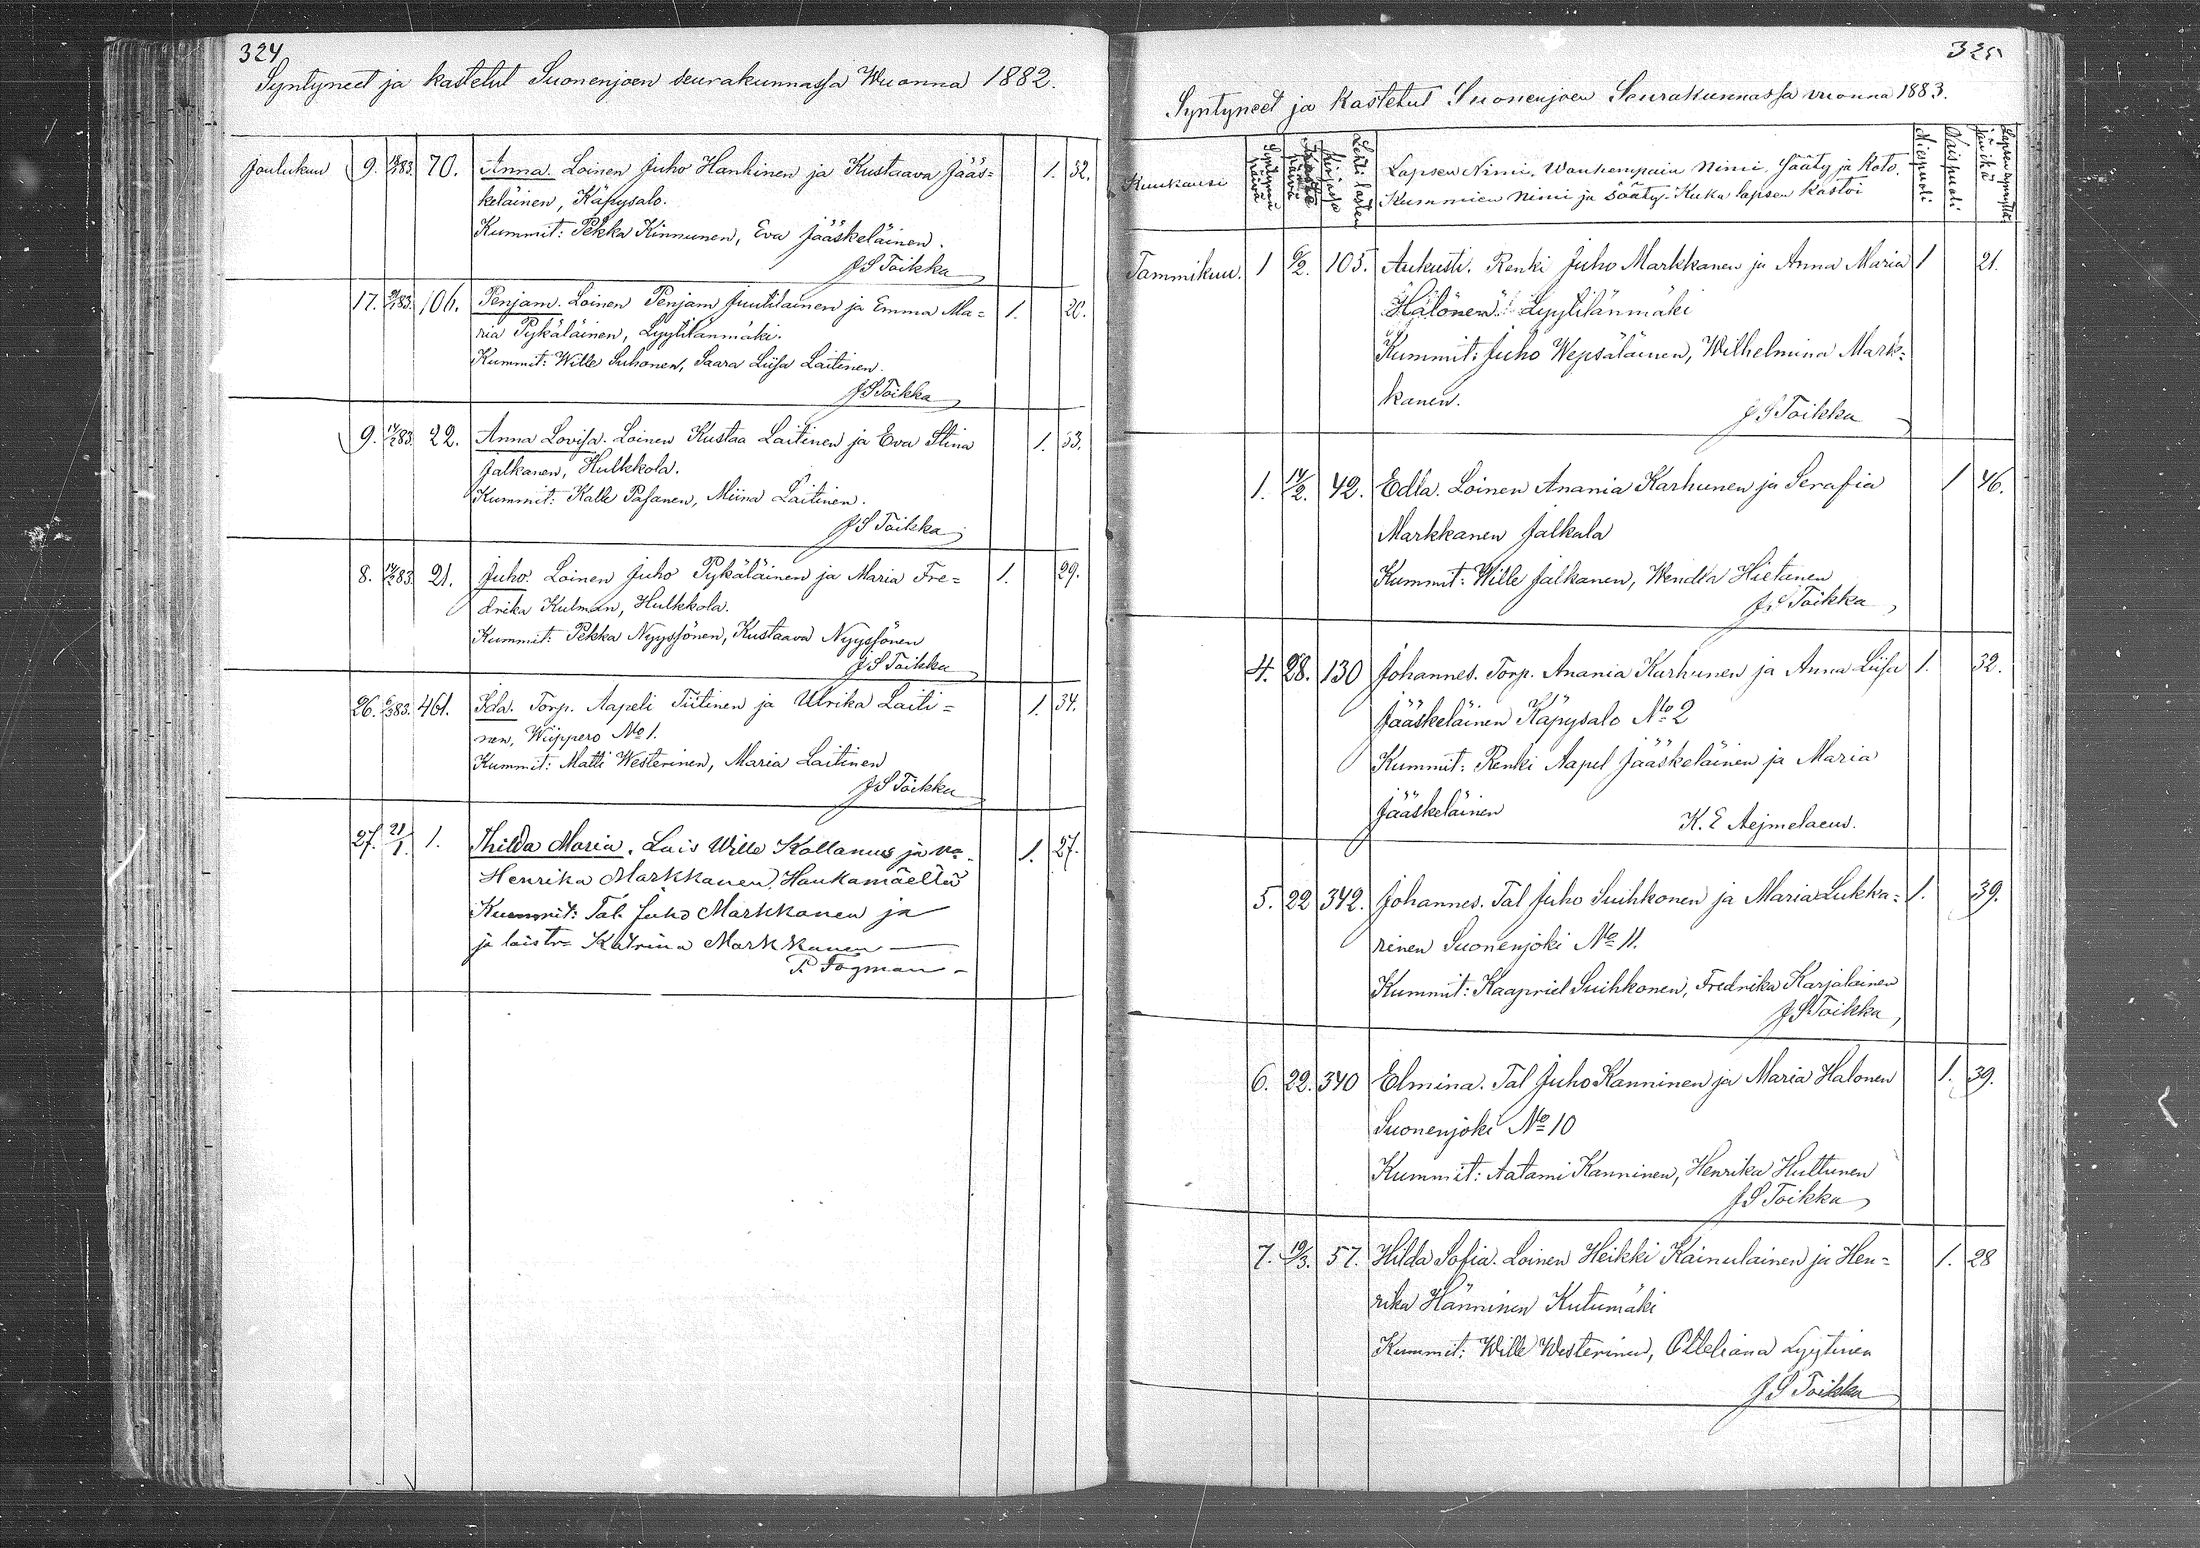 324
Syntyneet ja kastetut Suonenjoen seurakunnassa Wuonna 1882.
Joulukuu 9. 70. Anna. Loinen Juho Hankinen ja Kustaava Jääs- 1. 32.
keläinen, Käpysalo.
Kummit: Pekka Kinnunen, Eva Jääskeläinen.
J S Toikka
17. 106. Penjam. Loinen Penjam Juutilainen ja Emma Ma= 1. 20.
ria Pykäläinen, Lyytilänmäki.
Kummit: Wille Suhonen, Saara Liisa Laitinen.
J S Toikka
9. 22. Anna Lovisa. Loinen Kustaa Laitinen ja Eva Stina 1. 33.
Jalkanen, Hulkkola.
Kummit: Kalle Pasanen, Miina Laitinen.
J S Toikka
8. 21. Juho. Loinen Juho Pykäläinen ja Maria Fre= 1. 29.
drika Kulman, Hulkkola.
Kummit: Pekka Nyyssönen, Kustaava Nyyssönen
J S Toikka
26. 461. Ida. Torp. Aapeli Tiitinen ja Ulrika Laiti= 1. 34.
nen, Wiippero No 1.
Kummit: Matti Westerinen, Maria Laitinen
J S Toikka
27. 21/1. 1. Thilda Maria. Lais Wille Kollanus ja vo. 1. 27.
Henrika Markkanen, Haukamäeltä
Kummit: Tal. Juho Markkanen ja
ja loistr. Katrina Markkanen
P. Fogman
325
Syntyneet ja Kastetut Suonenjoen Seurakunnassa vuonna 1883.
Kuukausi Syntymä päivä Kaste päivä Lehti lasten kirjassa Lapsen Nimi, Wanhempain Nimi, Sääty ja Koto. Miespuoli Waispuoli Lapsensynnyttäjän ikä
Kummien nimi ja Sääty. Kuka lapsen Kastoi
Tammikuu. 1 6/2. 103. Aukusti. Renki Juho Markkanen ja Anna Maria 1 21.
Halonen. Lyytilänmäki
Kummit: Juho Wepsäläinen, Wilhelmina Mark=
kanen.
J S Toikka
1. 14/2. 42. Edla. Loinen Anania Karhunen ja Serafia 1 46.
Markkanen Jalkala
Kummit: Wille Jalkanen, Wendla Hietanen
J. S Toikka
4. 28. 130 Johannes. Torp. Anania Karhunen ja Anna Liisa 1. 32.
Jääskeläinen Käpysalo No 2
Kummit: Renki Aapel Jääskeläinen ja Maria
Jääskeläinen
K. E Aejmelaeus.
5. 22 342. Johannes. Tal Juho Suihkonen ja Maria Lukka= 1. 39.
rinen Suonenjoki No 11.
Kummit: Kaapriel Suihkonen, Fredrika Karjalainen
J S Toikka
6. 22. 340 Elmina. Tal Juho Kanninen ja Maria Halonen 1. 39.
Suonenjoki No 10
Kummit: Aatami Kanninen, Henrika Huttunen
J S Toikka
7. 10/3. 57. Hilda Sofia. Loinen Heikki Kainulainen ja Hen= 1. 28
rika Hänninen Kutumäki
Kummit: Wille Westerinen, Otteliana Lyytinen
J S Toikka